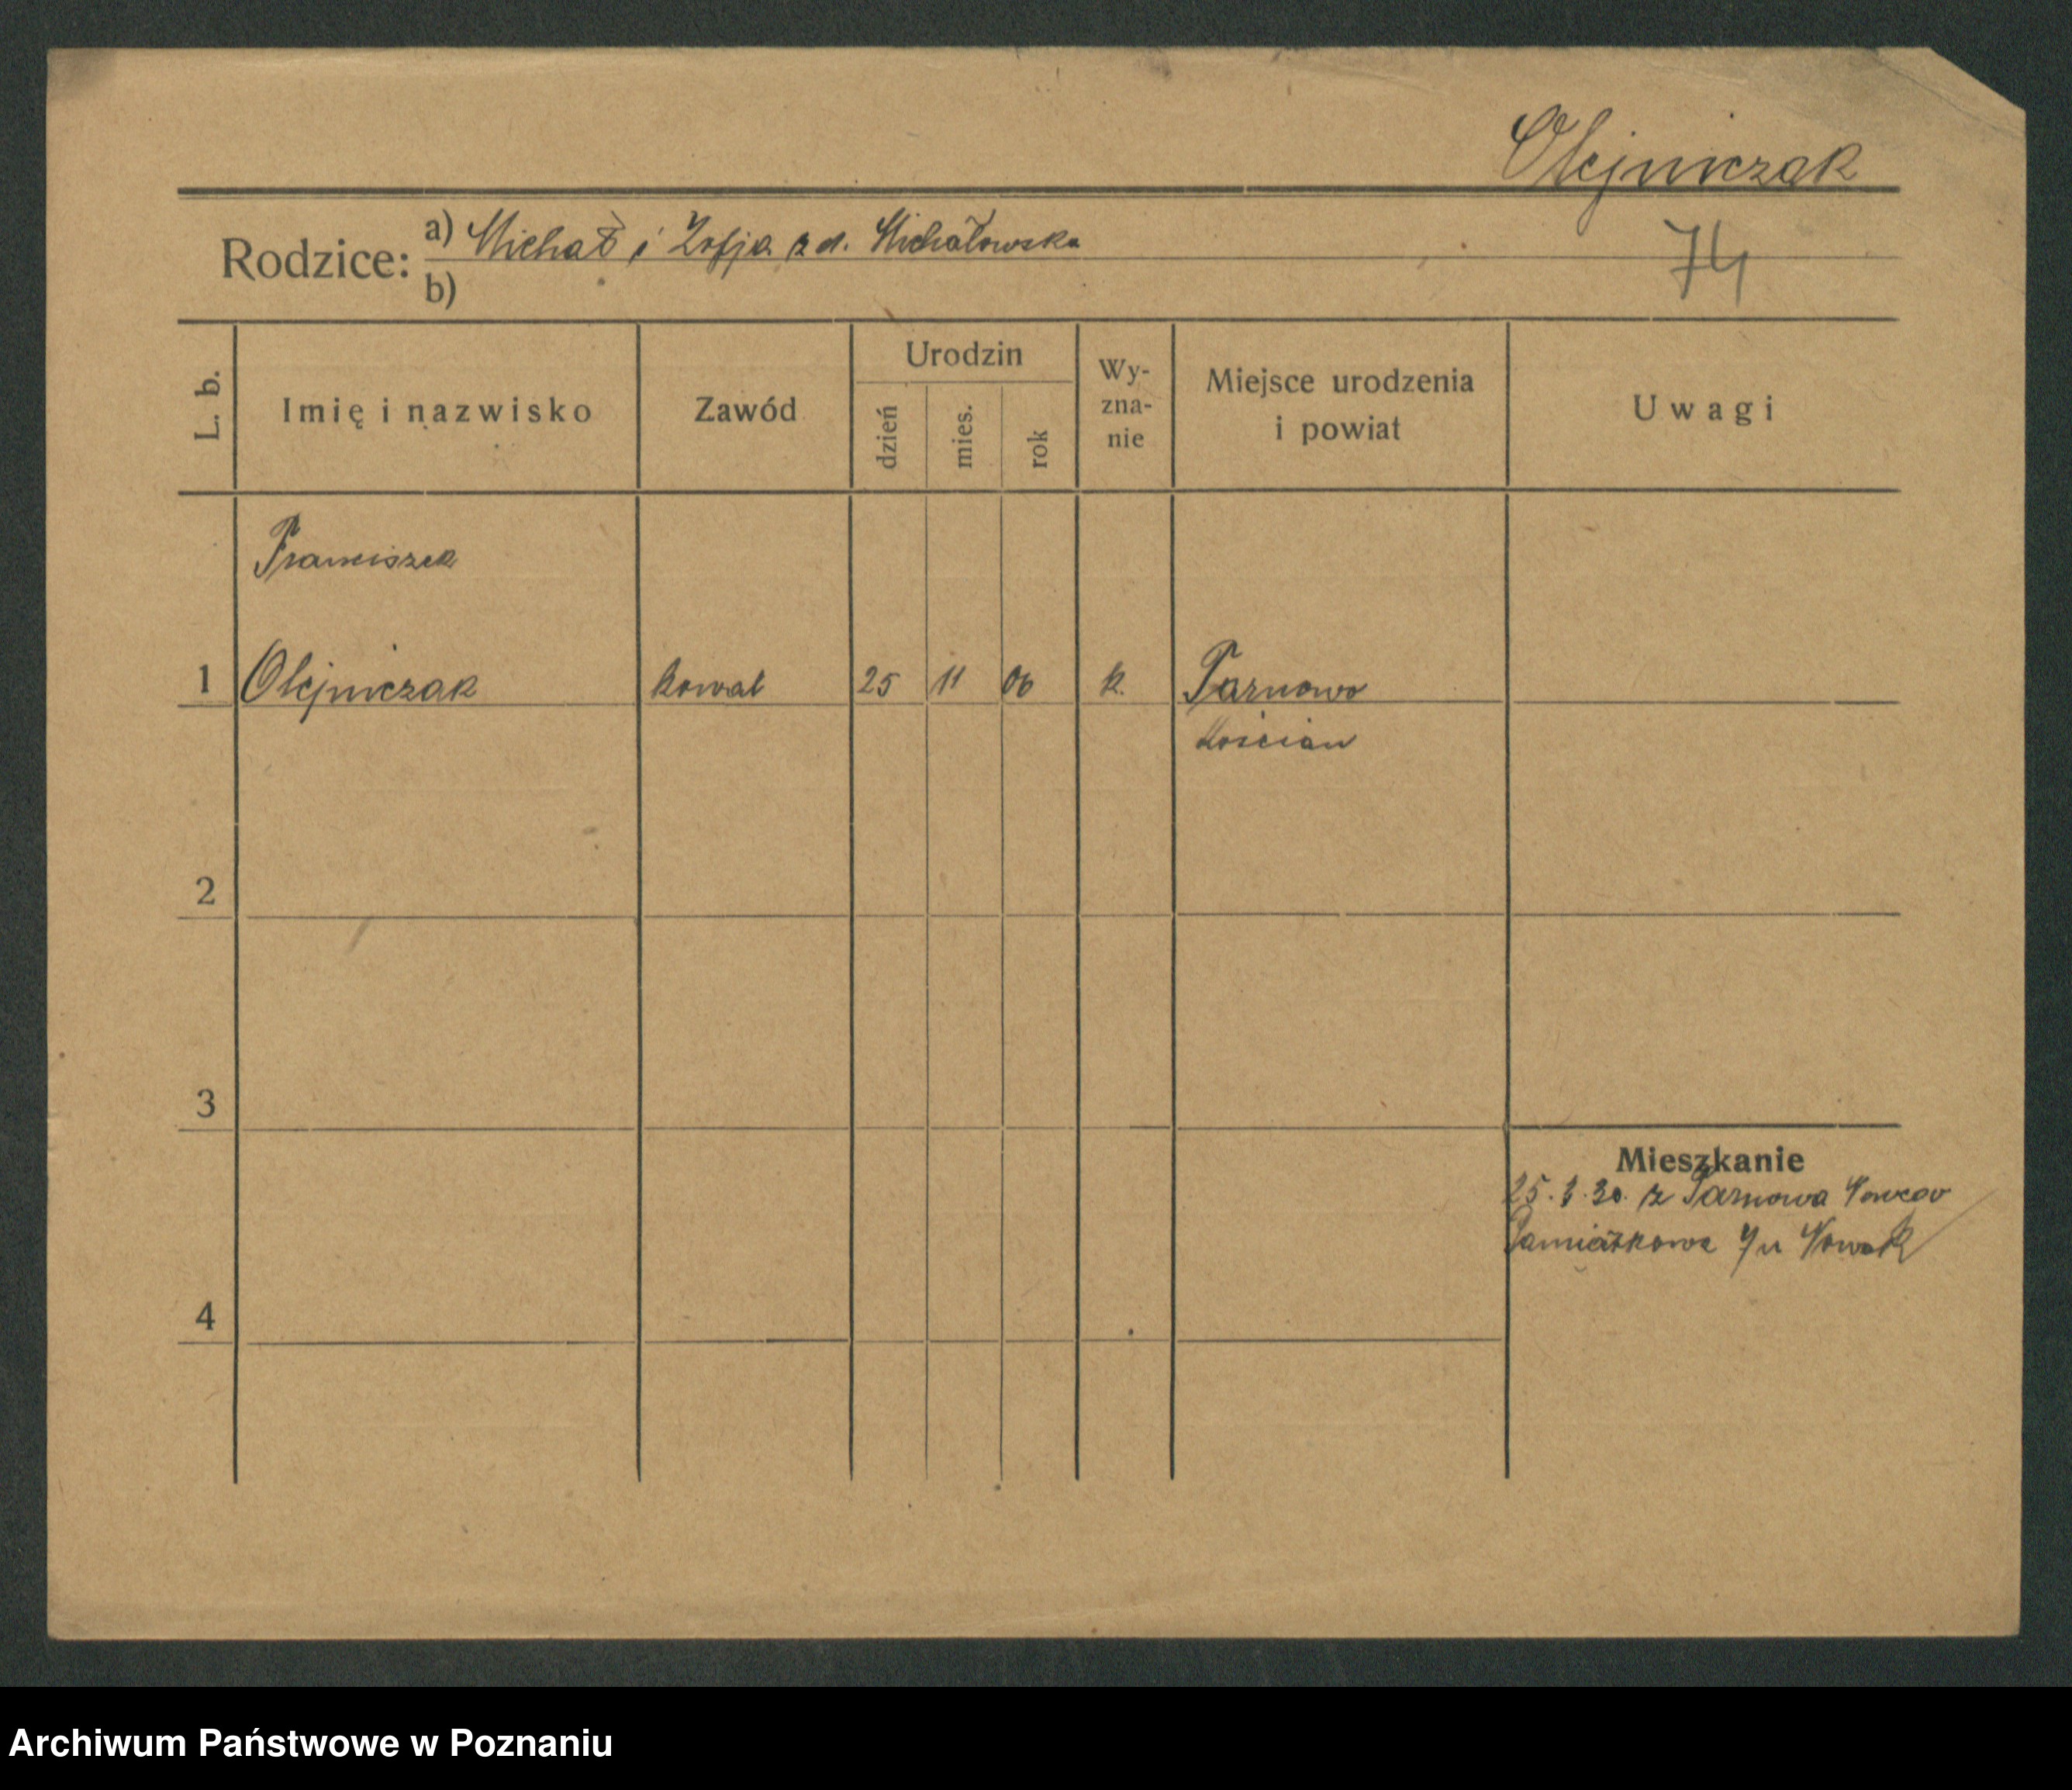 Olejniczak
Rodzice: a) Michał i Zofja z d. Michałowska
b)
74
L. b. Imię i nazwisko Zawód Urodzin dzień mies. rok Wy-zna-nie Miejsce urodzenia i powiat Uwagi
Franciszek
1 Olejniczak kowal 25 11 06 k. Tarnowo
Kościan
2
3
Mieszkanie
25. 3. 30. z Tarnowa
u Nowak
4
Archiwum Państwowe w Poznaniu